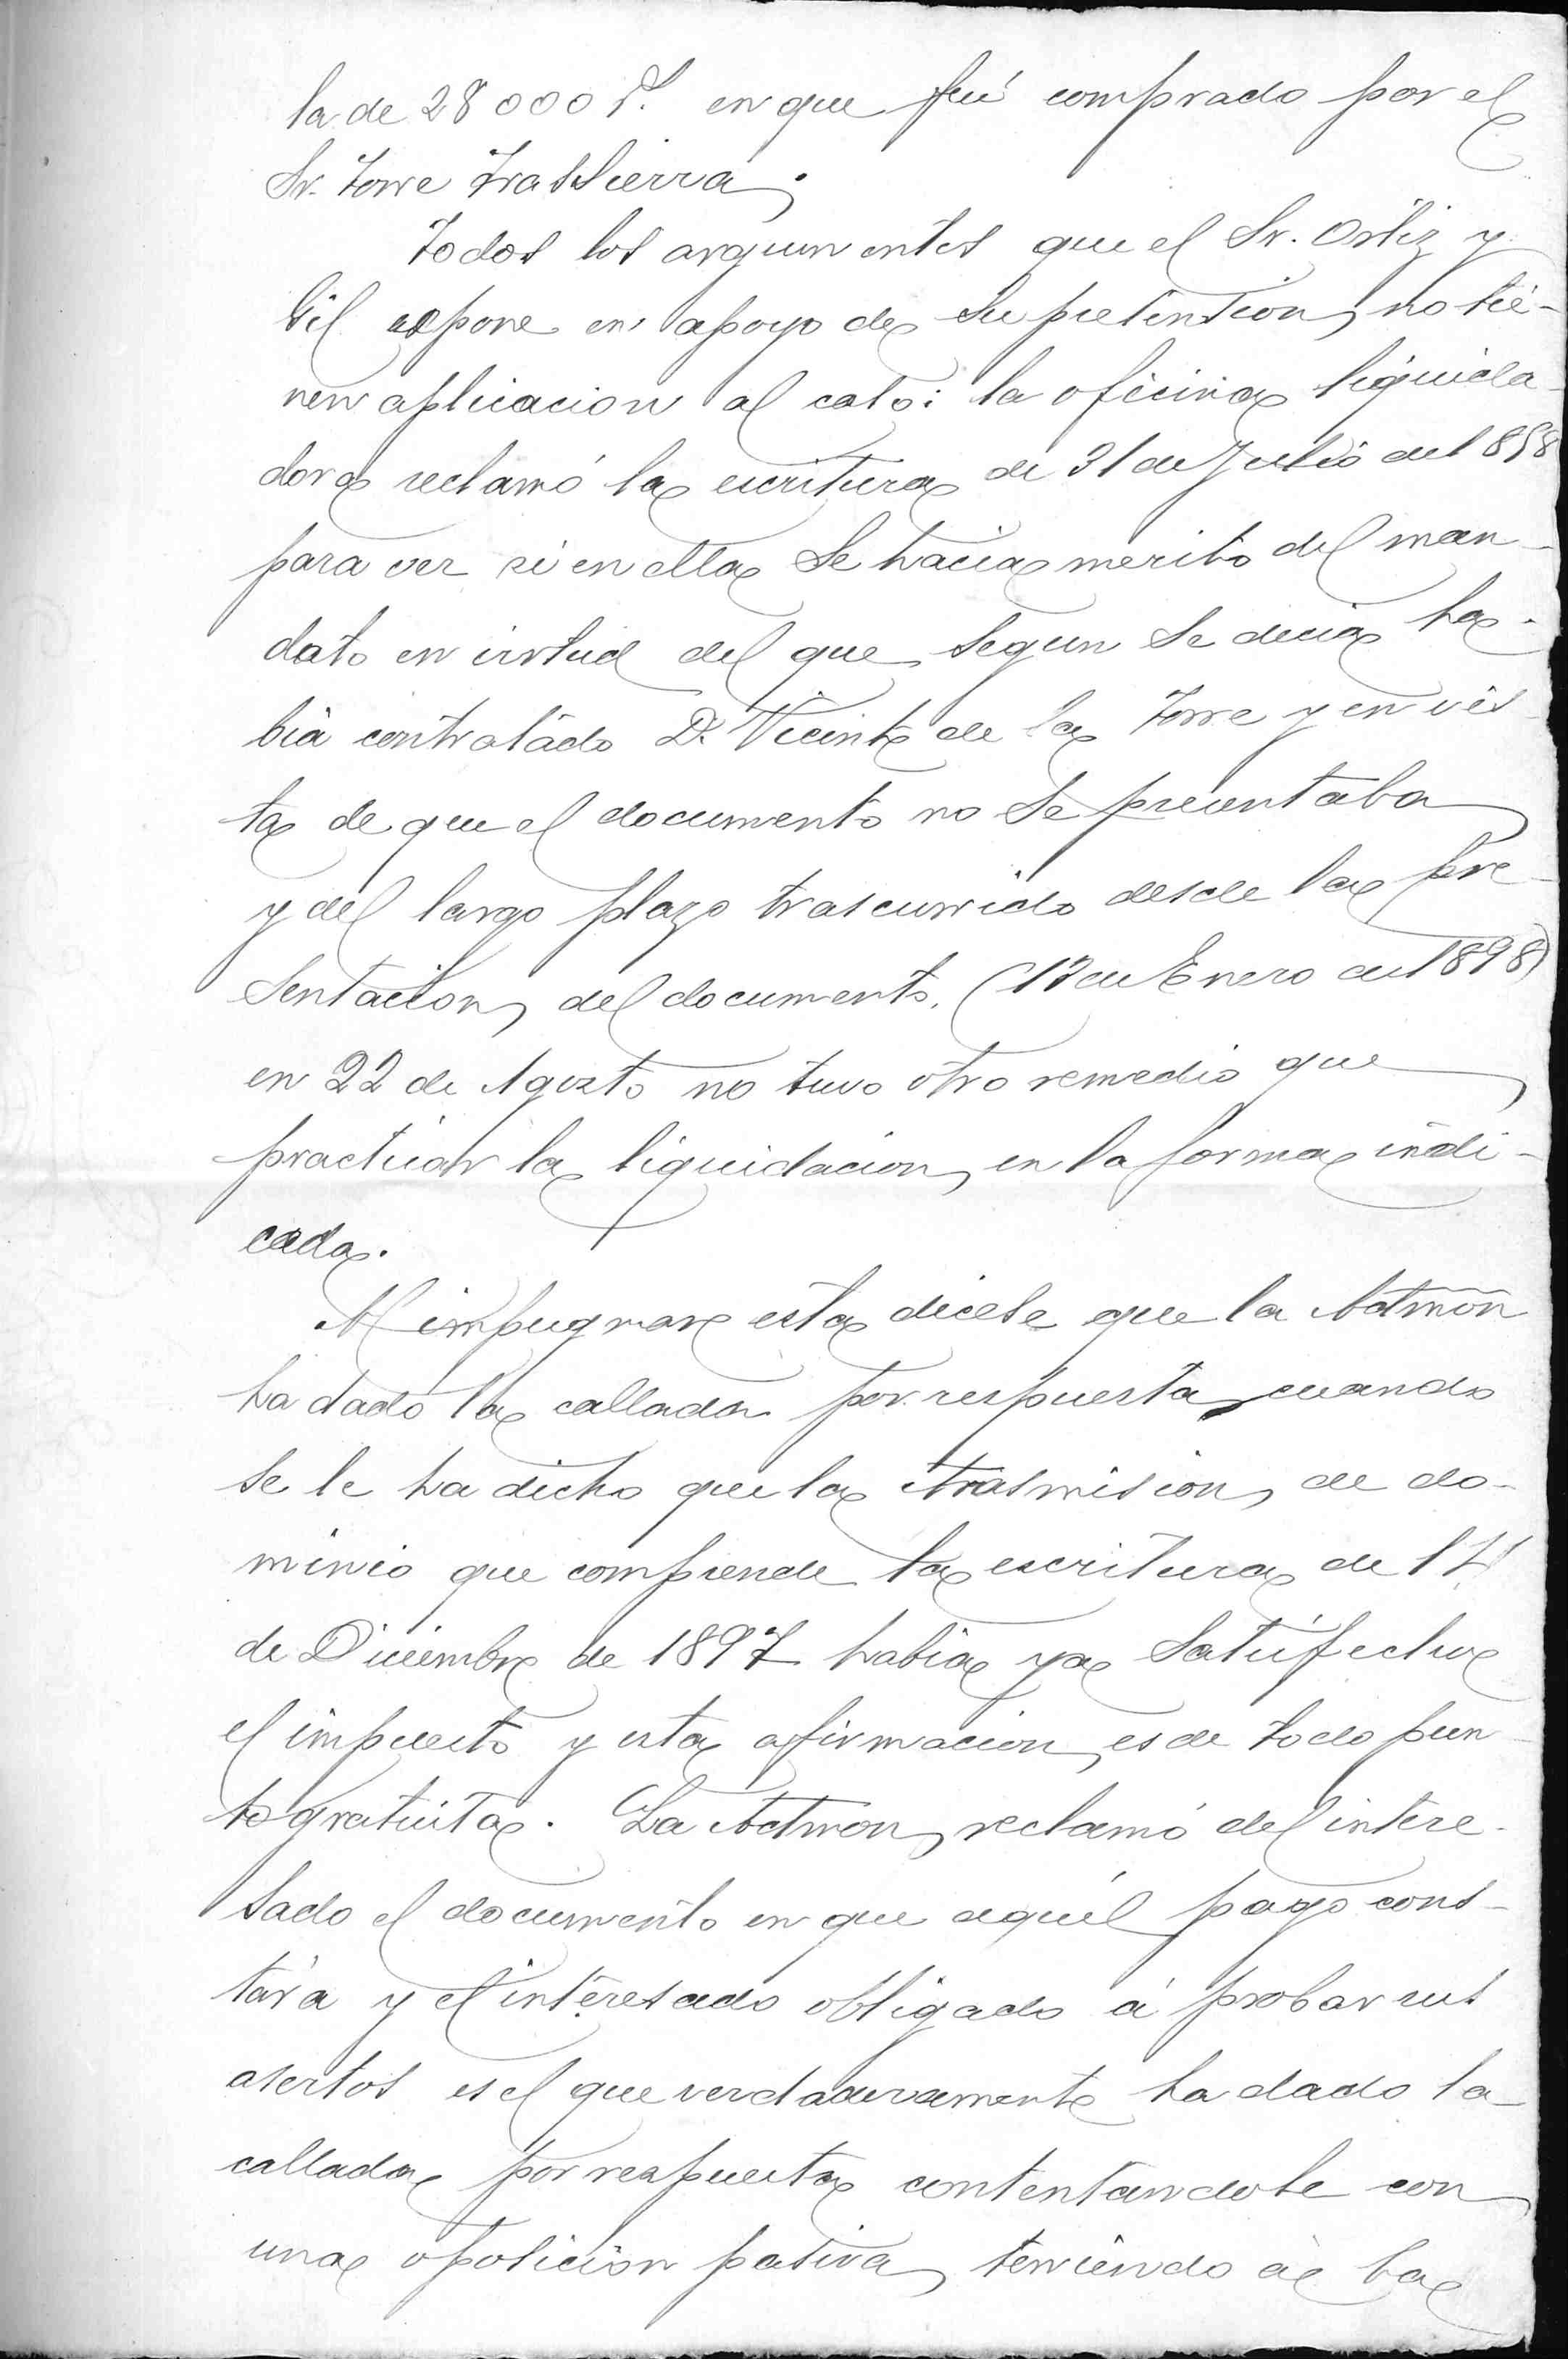 la de 28000 p.s en que fué comprado por el
Sr. Torre Trassierra.
Todos los argumentos que el Sr. Ortiz y
Gil expone en apoyo de su pretension, no tie-
nen aplicacion al caso: la oficina liquida-
dora reclamó la escritura de 31 de Julio de 1858
para ver si en ella se hacia merito del man-
dato en virtud del que segun se decia ha-
bia contratado D. Vicente de la Torre y en vis-
ta de que el documento no se presentaba
y del largo plazo trascurrido desde la pre-
sentacion del documento. (13 de Enero de 1898)
en 22 de Agosto no tuvo otro remedio que
practicar la liquidacion en la forma indi-
cada.
Al impugnar esta dícese que la Admon
ha dado la callada por respuesta cuando
se le ha dicho que la trasmision de do-
minio que comprende la escritura de 17
de Diciembre de 1897 habia ya satisfecho
el impuesto y esta afirmacion es de todo pun-
to gratuita. La Admon reclamó del intere-
sado el documento en que aquél pago cons-
tára y el interesado obligado á probar sus
asertos es el que verdaderamente ha dado la
callada por respuesta contentandose con
una oposicion pasiva, teniendo á la